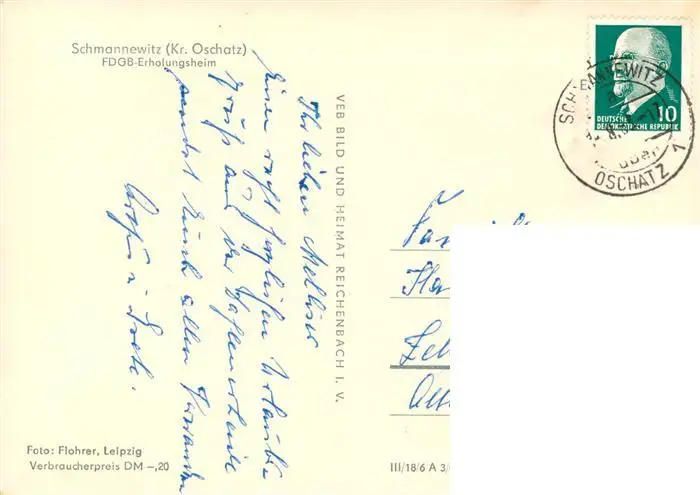 Schmannewitz (Kr. Oschatz)
FDGB-Erholungsheim
Ihr lieben
Einen recht herzlichen Urlaubs
gruß aus der Dahlener Heide
sendet Euch allen
VEB BILD UND HEIMAT REICHENBACH I. V.
DEUTSCHE
DEMOKRATISCHE REPUBLIK
10
OSCHATZ 1
Fam
Foto: Flohrer, Leipzig
Verbraucherpreis DM –,20
III/18/6 A 3/